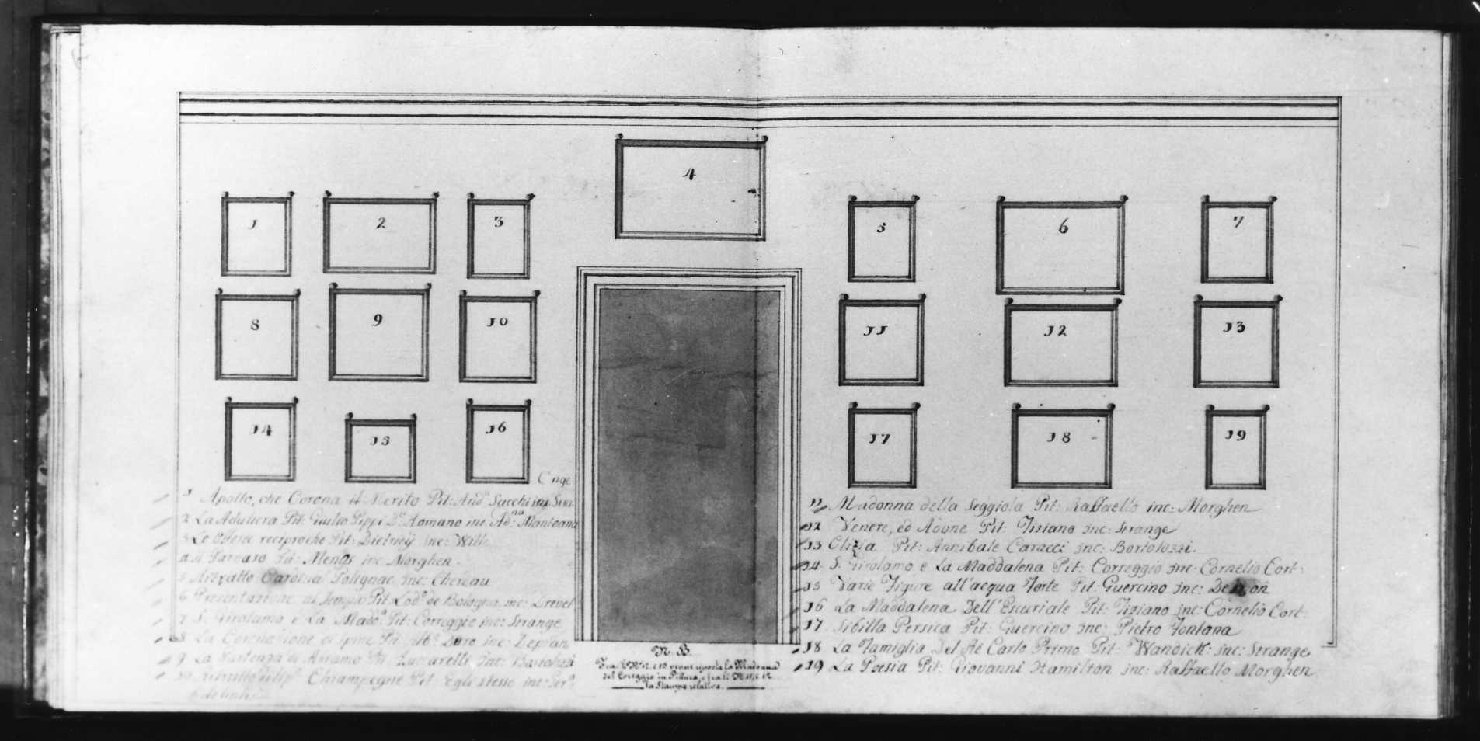 4
1
2
3
5
6
7
8
9
10
11
12
13
14
15
16
17
18
19
1 Apollo, che Corona il Merito Pit: And.ª Sacchi inc.
2 La Adultera Pit: Giulio Pippi D.º Romano inc: Ad.no Mantoana
3 Le Offese reciproche Pit: Dietricy inc: Wille
4 Il Parnaso Pit: Mengs inc: Morghen
5 Ritratto Cardinal Polignac, inc: Chereau
6 Presentazione al Tempio Pit: Lod.º de Bologna, inc:
7 S. Girolamo e La Mad.ª Pit: Correggio inc: Strange
8 La Coronazione di spine Pit: Alb.º Duro inc:
9 La Partenza di Abramo Pit: Zuccarelli Inc: Bartolozzi
10 Chiampagne Pit: Egli stesso inc:
11 Madonna della Seggiola Pit: Raffaello inc: Morghen
12 Venere, ed Adone Pit: Tiziano inc: Strange
13 Clizia Pit: Annibale Caracci inc: Bortolozzi.
14 S. Girolamo e La Maddalena Pit: Correggio inc: Cornelio Cort:
15 Varie Figure all'acqua Forte Pit: Guercino inc: Denon
16 La Maddalena Dell'Escuriale Pit: Tiziano inc: Cornelio Cort:
17 Sibilla Persica Pit: Guercino inc: Pietro Fontana
18 La Famiglia Del Re Carlo Primo Pit: Wandick: inc: Strange
19 La Poesia Pit: Giovanni Hamilton inc: Raffaello Morghen
N. B.
Fra li N.ri e la Madonna
del Coreggio in Pittura, e fra li N.ri 11, e 12
la Stampa relativa